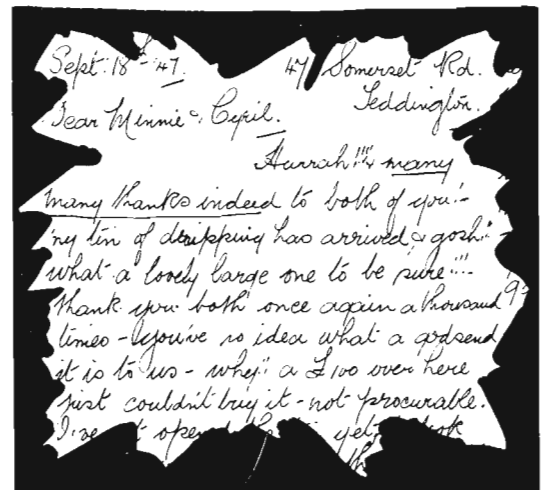 Sept. 18th 47. 47 Somerset Rd.
Teddington.
Dear Minnie & Cyril.
Hurrah!!! & many
many thanks indeed to both of you!-
my tin of dripping has arrived & gosh!!
what a lovely large one to be sure!!!-
thank you both once again a thousand
times - you've no idea what a godsend
it is to us - why!! a £100 over here
just couldn't buy it - not procurable.
I've opened yet